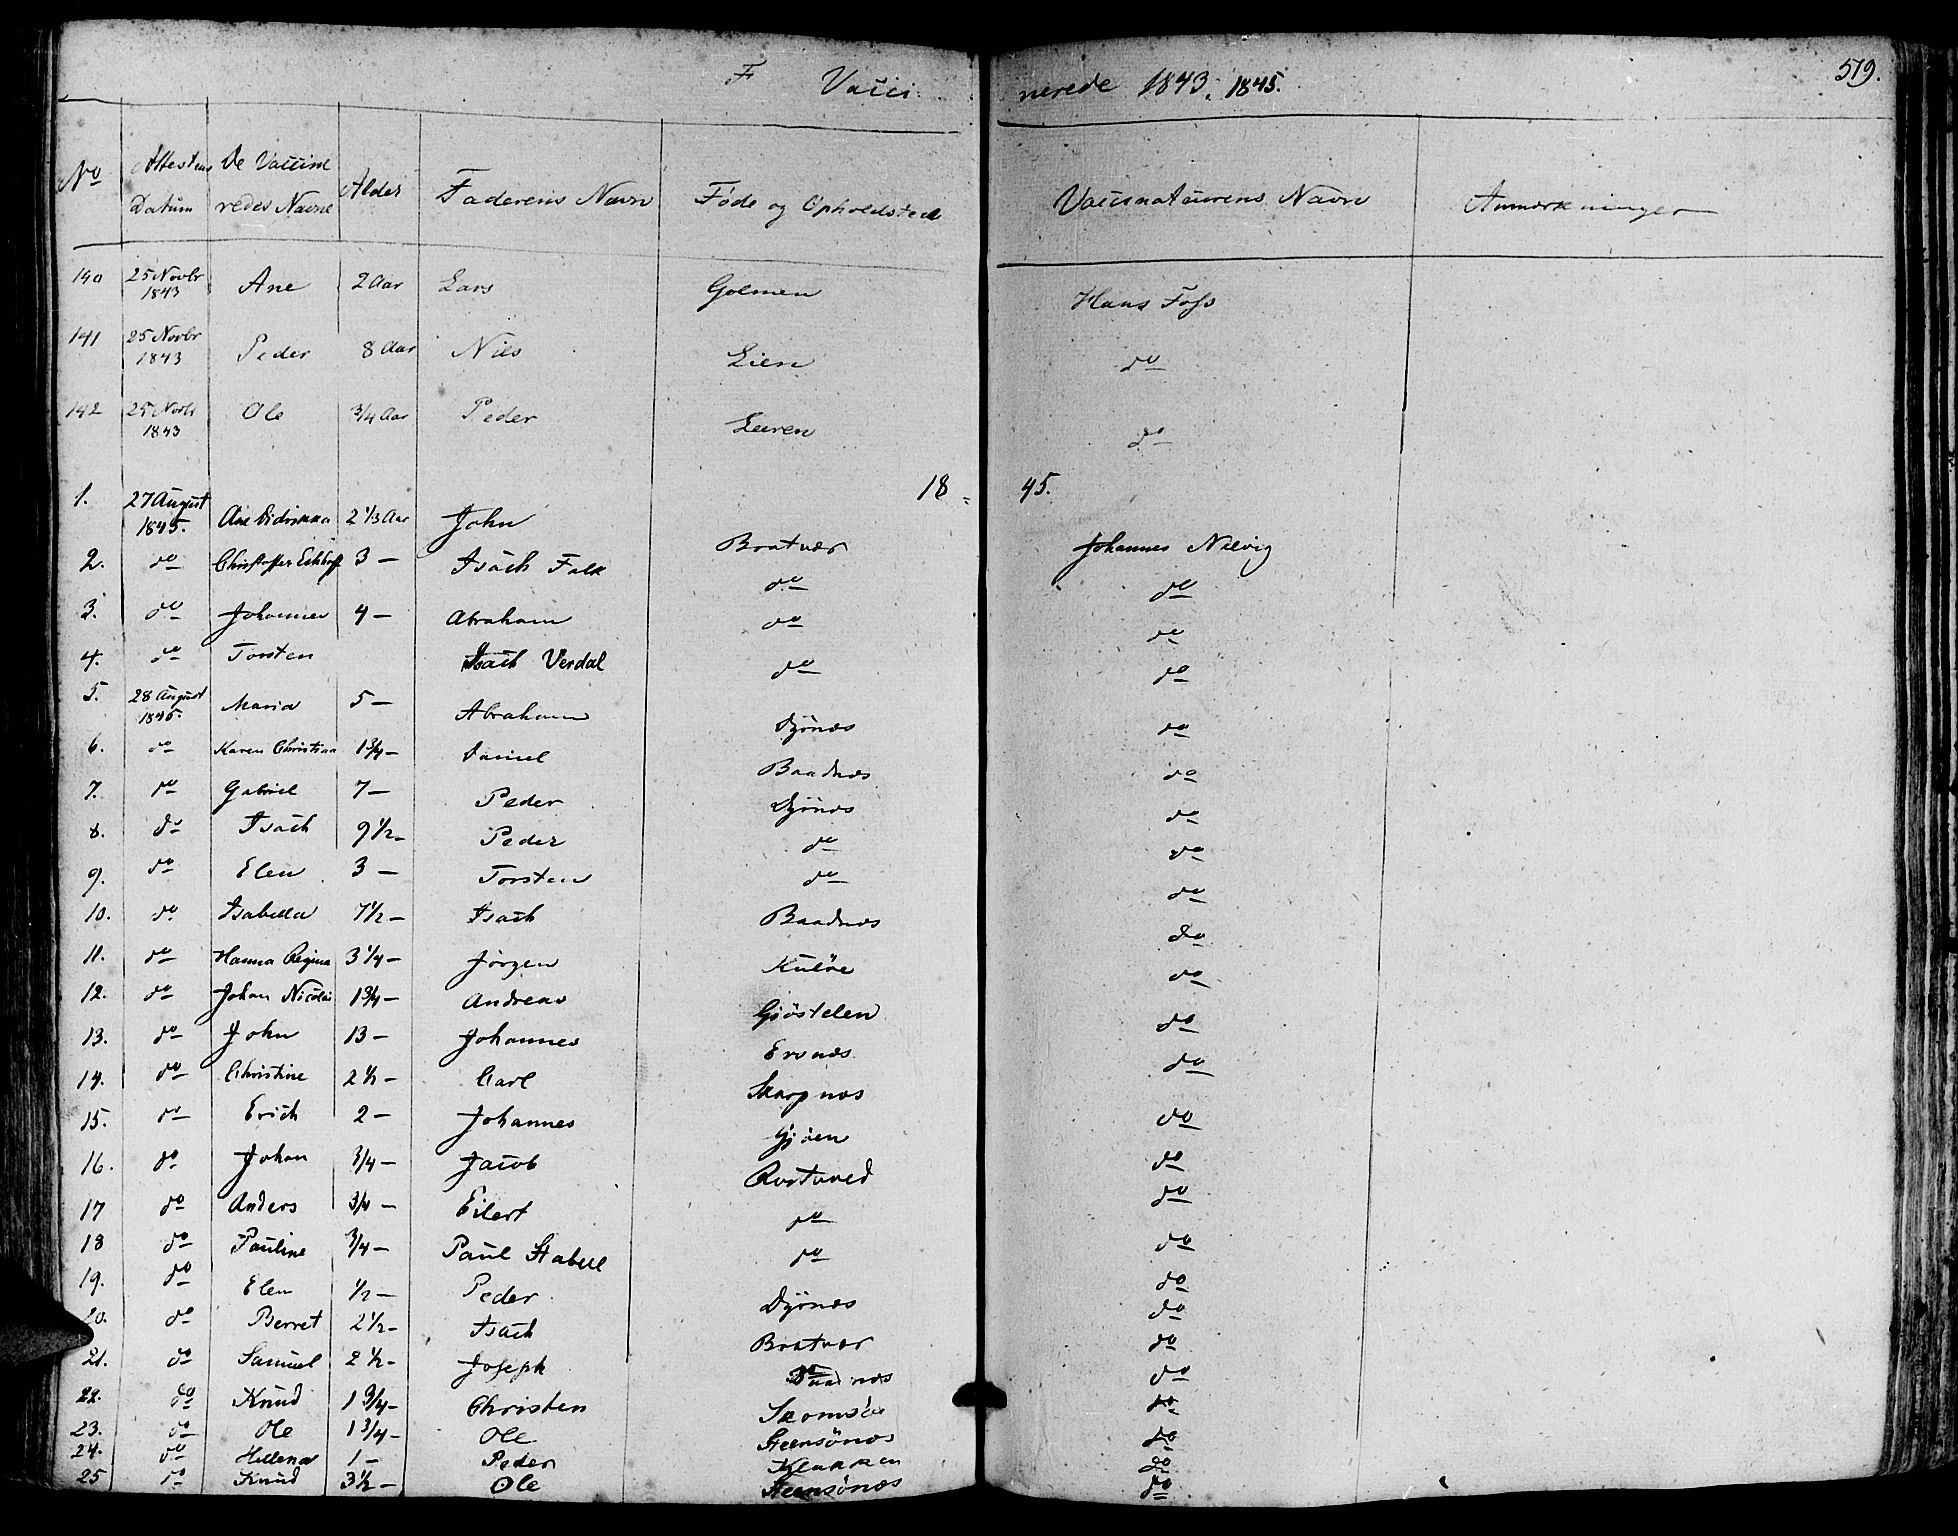 F Vacci nerede 1843. 1845. 519.
No Attestens Datum De Vaccineredes Navne Alder Faderens Navn Føde og Opholdsted Vaccinateurens Navn Anmærkninger
140 25 Novbr 1843 Ane 2 Aar Lars Golmen Hans Foss
141 25 Novbr 1843 Peder 8 Aar Nils Lien do
142 25 Novbr 1843 Ole 3/4 Aar Peder Leeren do
18 45.
1. 27 August 1845. Ane Didrikka 2 1/3 Aar John Bratvær Johannes Nilvig
2. do Christoffer Eckhoff 3 — Isach Falk do do
3. do Johannes 4 — Abraham do do
4. do Torsten Isach Verdal do do
5. 28 August 1845. Maria 5 — Abraham Dyrnæs do
6. do Karen Christina 1 3/4 — Daniel Baadnæs do
7. do Gabriel 7 — Peder Dyrnæs do
8. do Isach 9 1/2 — Peder do do
9. do Elen 3 — Torsten do do
10. do Isabella 7 1/2 — Isach Baadnæs do
11. do Hanna Regina 3 1/4 — Jørgen Kuløe do
12. do Johan Nicolai 1 3/4 — Andreas Gjöstelen do
13. do John 13 — Johannes Ervnæs do
14. do Christine 2 1/2 — Carl Skarpnæs do
15. do Erich 2 — Johannes Gjøen do
16. do Johan 3/4 — Jacob Rostveed do
17 do Anders 3/4 — Eilert do do
18 do Pauline 3/4 — Paul Stabell do do
19. do Elen 1/2 — Peder Dyrnæs do
20. do Berret 2 1/2 — Isach Bratvær do
21. do Samuel 2 1/2 — Joseph do
22. do Knud 1 3/4 — Christen Skomsøe do
23. do Ole 1 3/4 — Ole Steensönæs do
24. do Hellena 1 — Peder Klakken do
25 do Knud 3 1/2 — Ole Steensönæs do